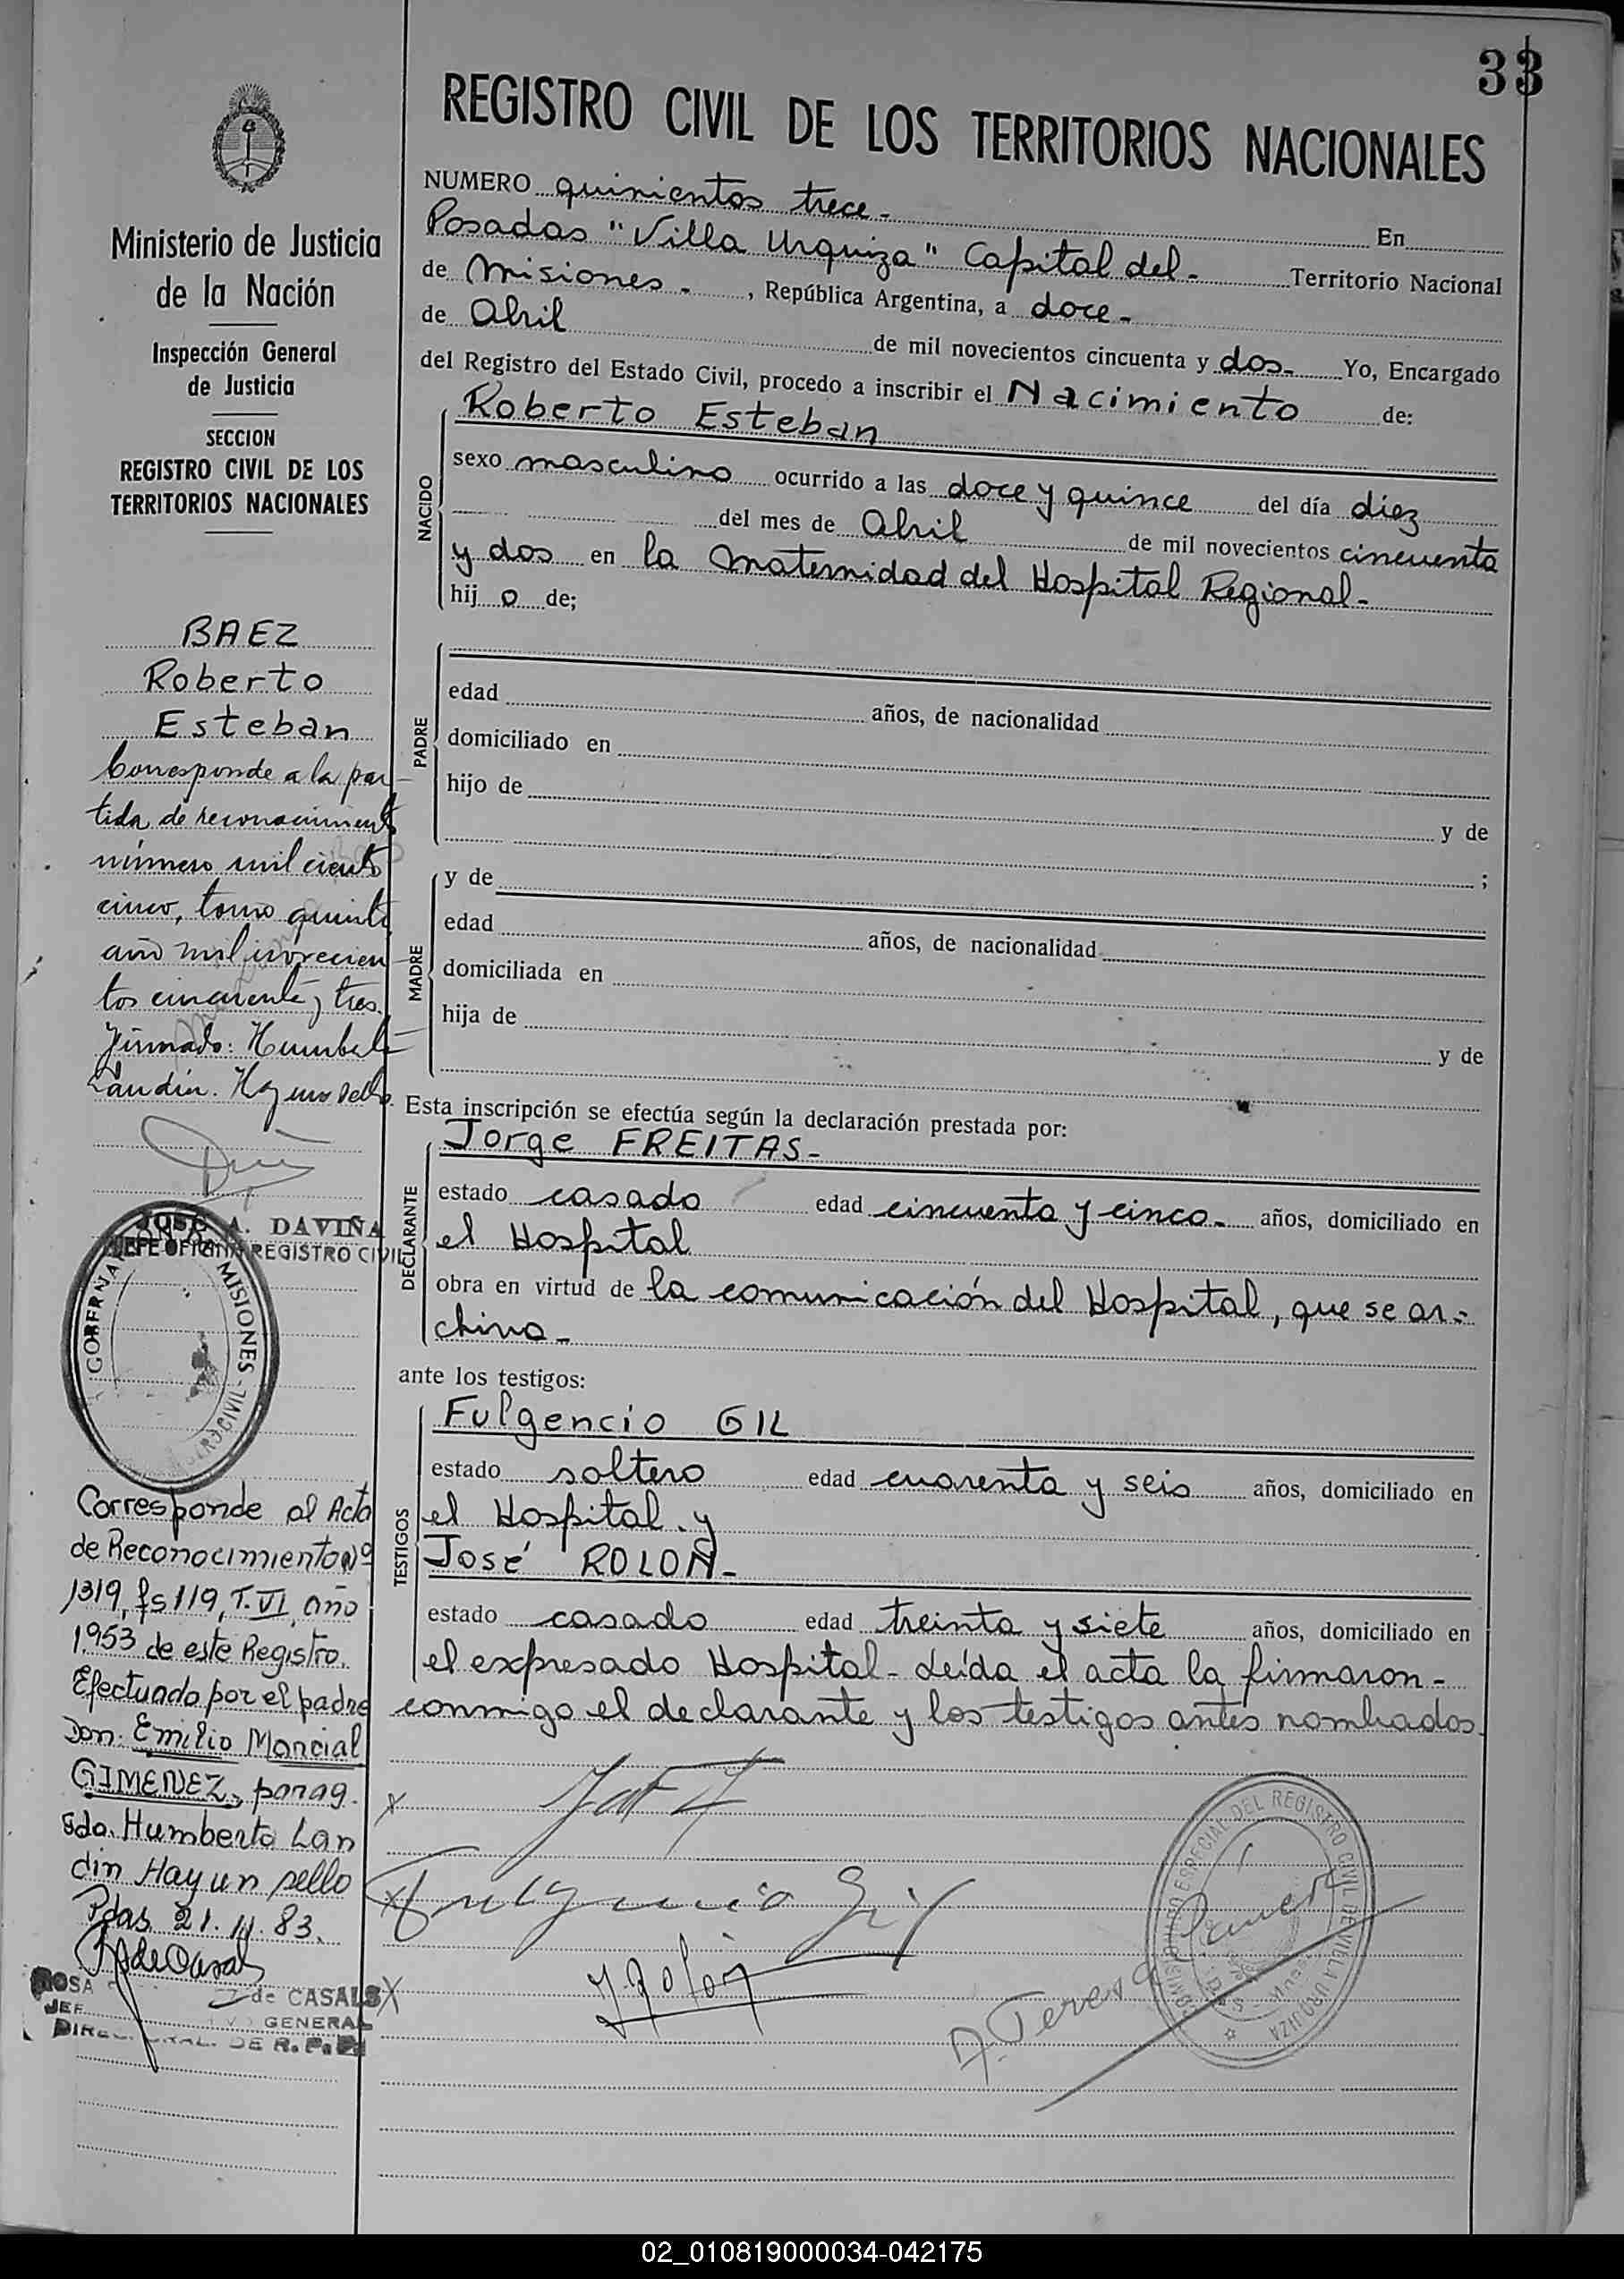 33
REGISTRO CIVIL DE LOS TERRITORIOS NACIONALES
Ministerio de Justicia
de la Nación
Inspección General
de Justicia
SECCION
REGISTRO CIVIL DE LOS
TERRITORIOS NACIONALES
BAEZ
Roberto
Esteban
Corresponde a la par-
tida de reconocimiento
número mil ciento
cinco, tomo quinto
año mil novecien-
tos cincuenta y tres.
Firmado: Humberto
Landin. Hay un sello.
JOSE A. DAVIÑA
JEFE OFICINA REGISTRO CIVIL
GOBERNA MISIONES
CIVIL
Corresponde al Acta
de Reconocimiento Nº
1319, fs 119, T. VI, año
1.953 de este Registro.
Efectuado por el padre
Don: Emilio Marcial
GIMENEZ, parag.
Fdo. Humberto Lan
din Hay un sello
Pdas. 21.11.83.
ROSA de CASALS
JEF GENERAL
DE R. P.
NUMERO quinientos trece.- En
Posadas "Villa Urquiza" Capital del- Territorio Nacional
de Misiones.- , República Argentina, a doce-
de Abril de mil novecientos cincuenta y dos- Yo, Encargado
del Registro del Estado Civil, procedo a inscribir el Nacimiento de:
NACIDO
Roberto Esteban
sexo masculino ocurrido a las doce y quince del día diez
del mes de Abril de mil novecientos cincuenta
y dos en la Maternidad del Hospital Regional-
hij o de;
PADRE
edad años, de nacionalidad
domiciliado en
hijo de
y de
;
MADRE
y de
edad años, de nacionalidad
domiciliada en
hija de
y de
Esta inscripción se efectúa según la declaración prestada por:
DECLARANTE
Jorge FREITAS-
estado casado edad cincuenta y cinco- años, domiciliado en
el Hospital
obra en virtud de la comunicación del Hospital, que se ar-
chiva-
ante los testigos:
TESTIGOS
Fulgencio GIL
estado soltero edad cuarenta y seis años, domiciliado en
el Hospital. y
José ROLON-
estado casado edad treinta y siete años, domiciliado en
el expresado Hospital- Leída el acta la firmaron-
conmigo el declarante y los testigos antes nombrados.
x
x Fulgencio Gil
x J. Rolon
A. Teresa
ESPECIAL DEL REGISTRO CIVIL DE VILLA URQUIZA
02_010819000034-042175